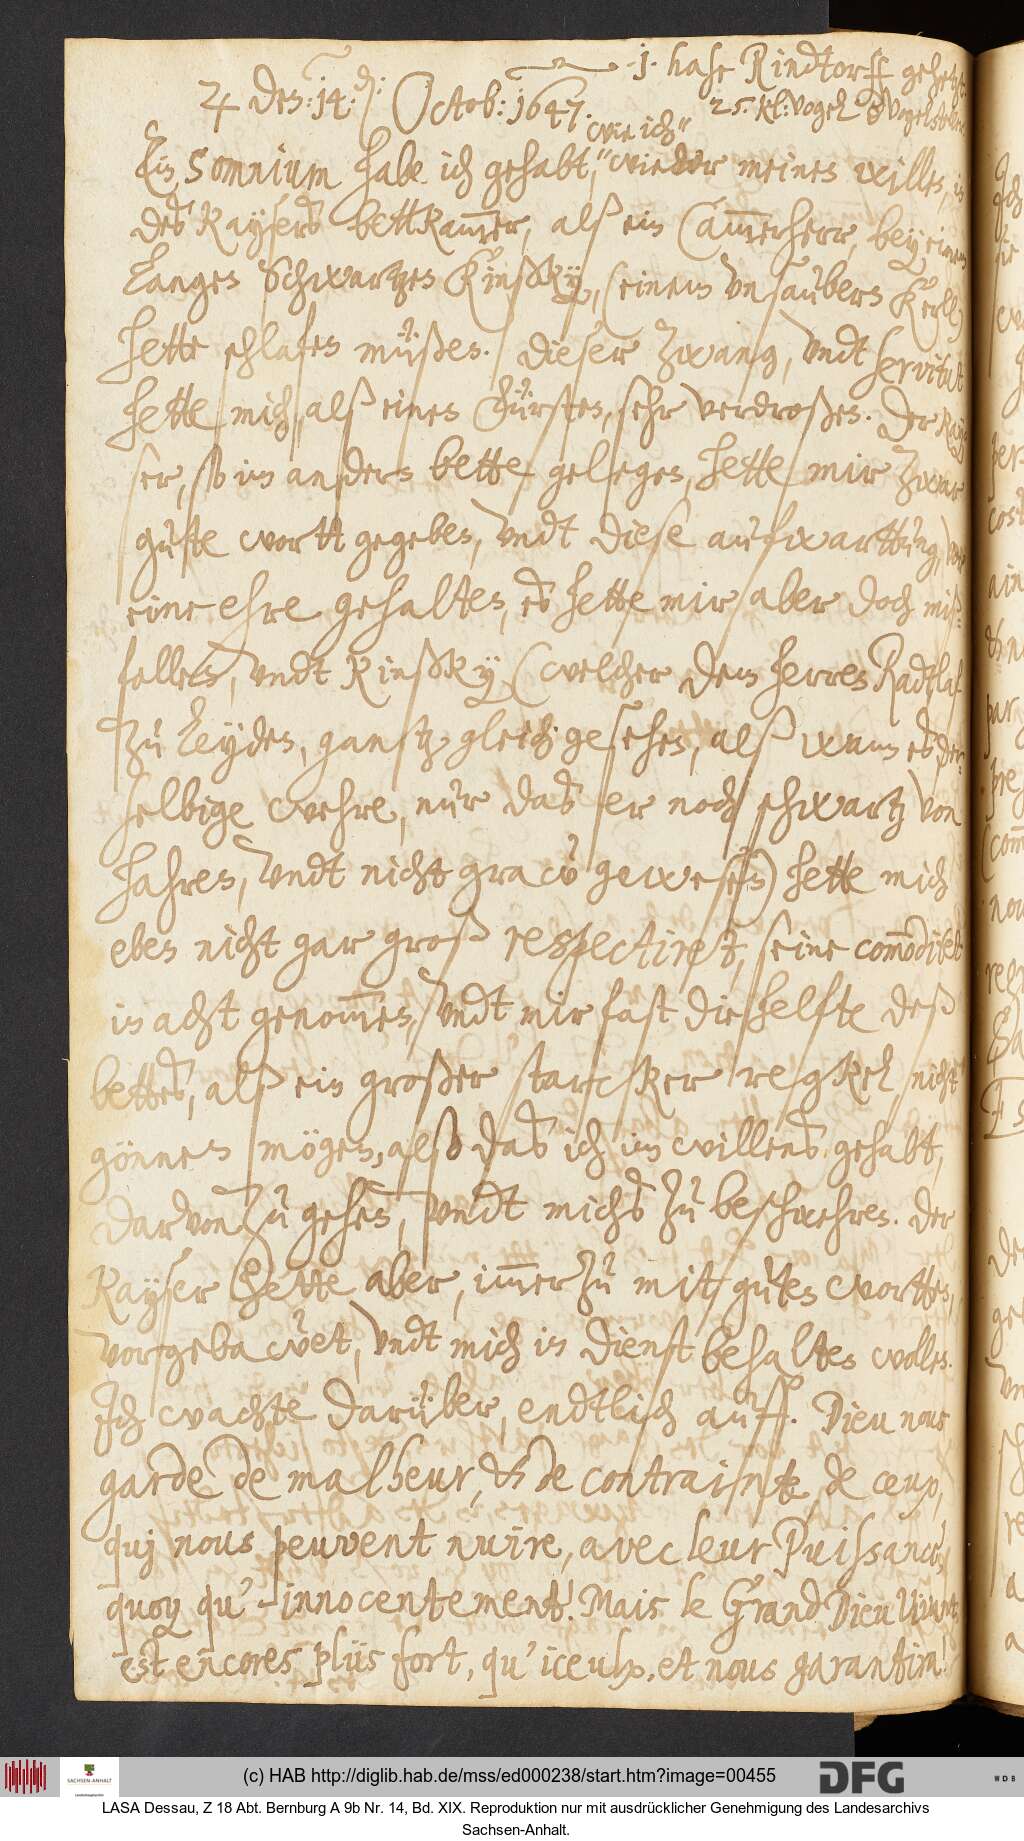 1. hase Rindtorff gehetzt
25. kl: vogel
♃ den: 14: d: Octob: 1647.
wie ich
Ein Somnium habe ich gehabt, wieder meinen willen, in
des Kaysers bettKam̄er, alß ein Cam̄erherr, bey einem
langen Schwartzen Kinßky, (einem unsaubern Kerll)
hette schlafen müßen. Dieser Zwang, undt servitut
hette mich, alß einen Fürsten, sehr verdroßen. Der Kay¬
ser, so im andern bette gelegen, hette mir zwar
guhte wortt gegeben, undt diese aufwarttung, vor
eine ehre gehalten, es hette mir aber doch miß¬
fallen, undt Kinßky (welcher dem herren Radtlaf
zu Leyden, gantz gleich gesehen, alß wann es der¬
selbige wehre, nur das er noch schwartz von
haaren, undt nicht graw gewesen) hette mich
eben nicht gar groß respectiret, seine com̄oditet
in acht genom̄en, undt mir fast die helfte deß
bettes, alß ein großer starcker regkel nicht
gönnen mögen, also das ich im willens gehabt,
darvon zu gehen, undt michs zu beschwehren. Der
Kayser hette aber, im̄erzu mit guten wortten,
vorgebawet, undt mich in dienst behalten wollen.
Ich wachte darüber, endtlich auff. Dieu nous
garde de malheur, & de contrainte, de ceux,
quj nous peuvent nuire, avec leur Puissance,
quoy qu'innocentement! Mais le Grand Dieu Vivant,
est encores plüs fort, qu'iceulx, et nous garantira!
(c) HAB http://diglib.hab.de/mss/ed000238/start.htm?image=00455
SACHSEN-ANHALT
DFG
WDB
LASA Dessau, Z 18 Abt. Bernburg A 9b Nr. 14, Bd. XIX. Reproduktion nur mit ausdrücklicher Genehmigung des Landesarchivs
Sachsen-Anhalt.